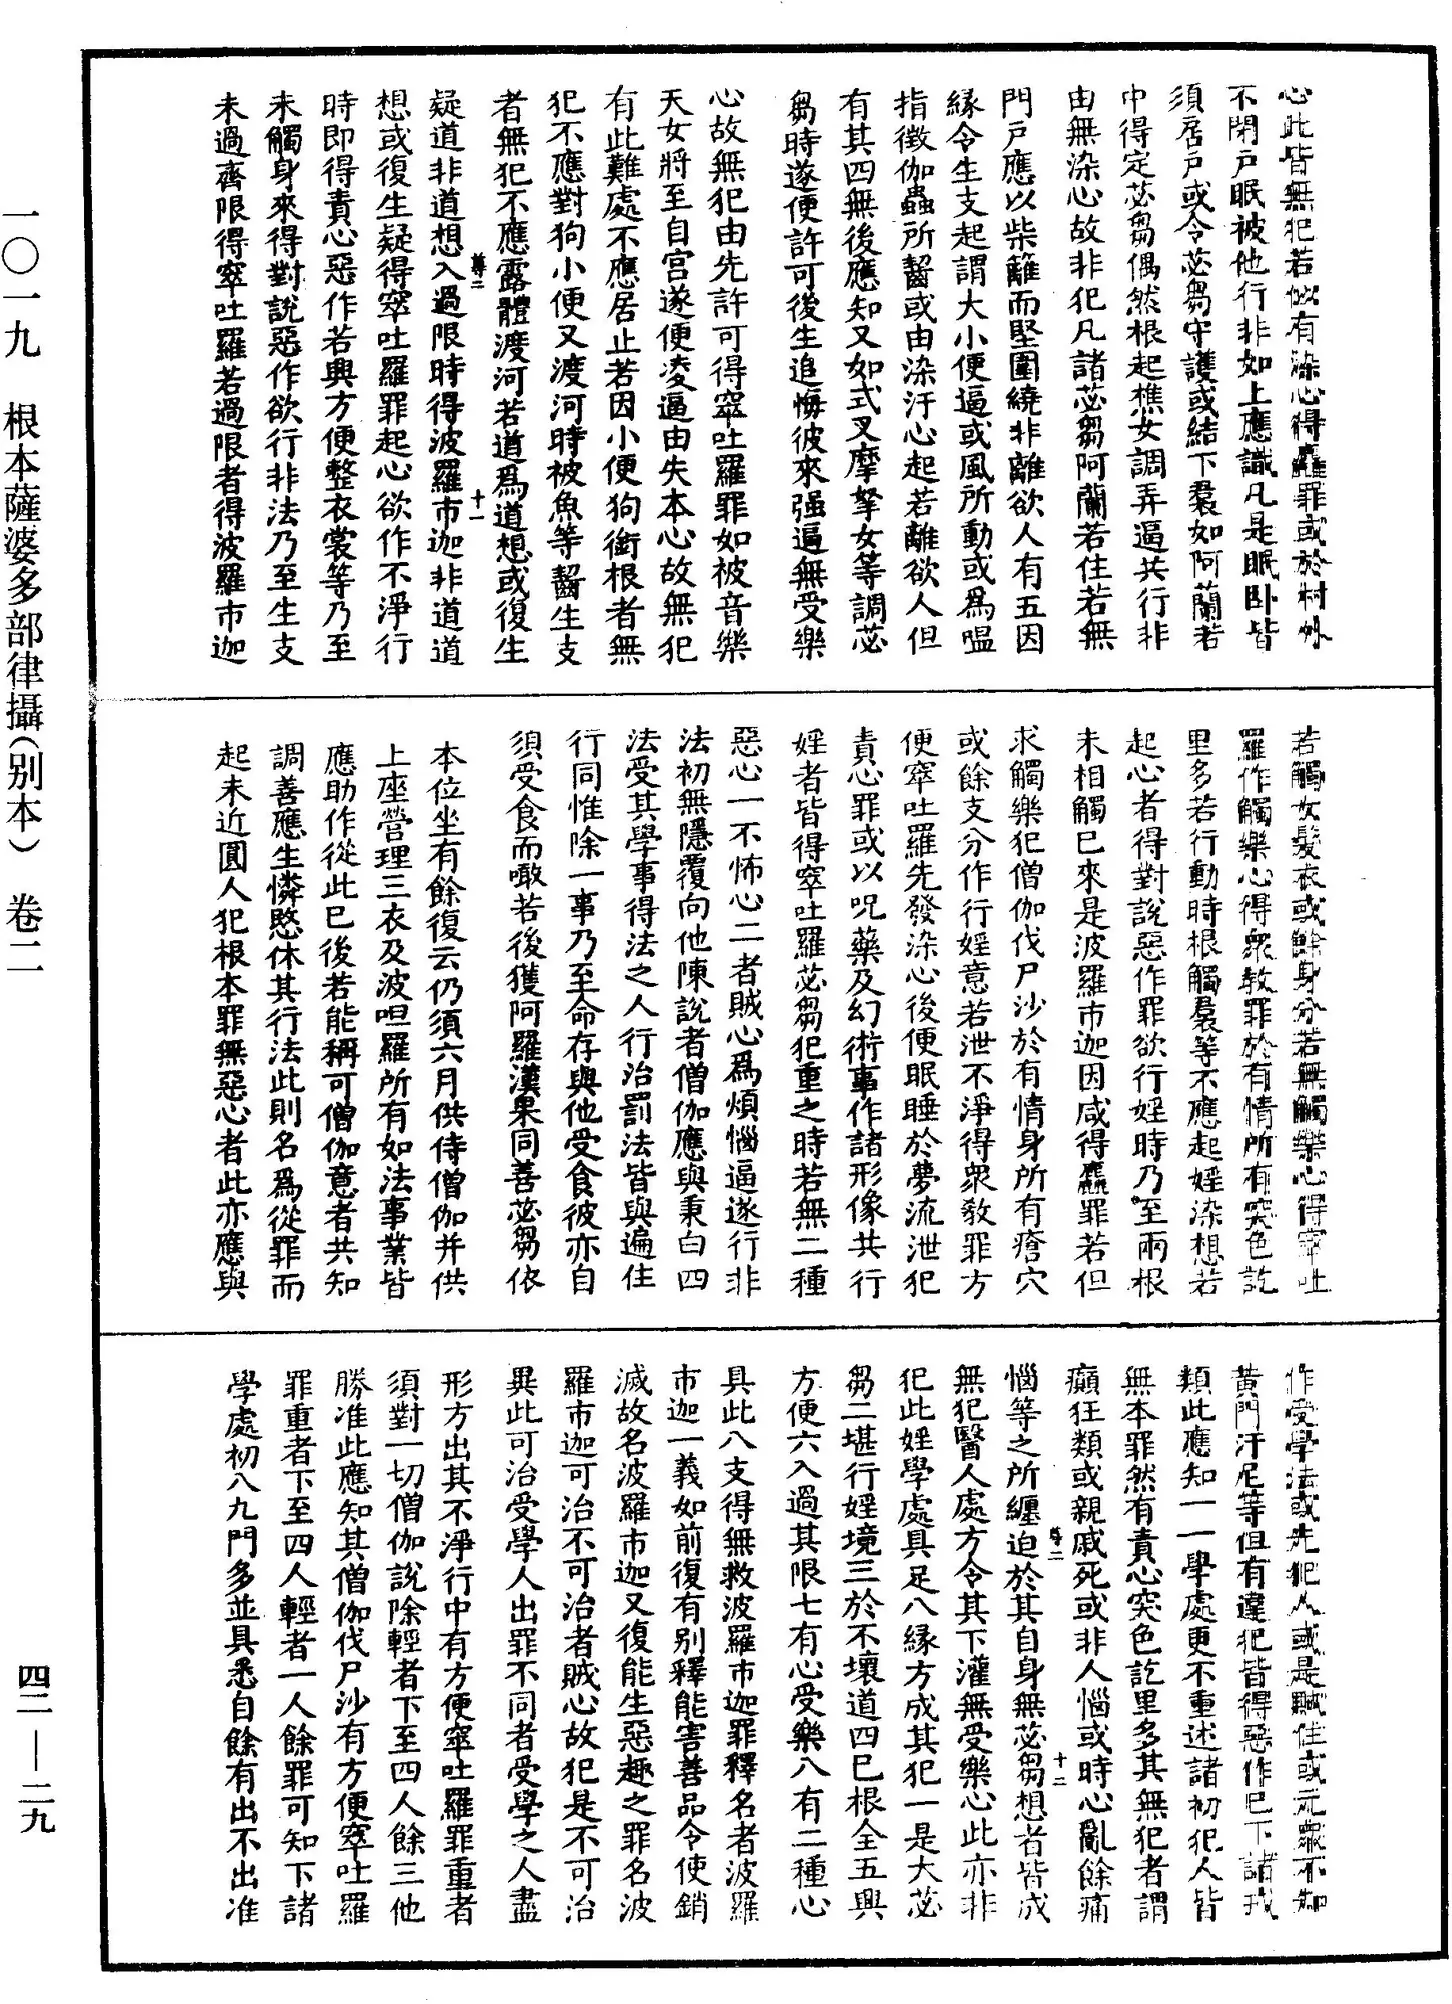 心此皆無犯若似有染心得麤罪或於村外
不閉戶眠被他行非如上應識凡是眠卧皆
須居戶或令苾芻守護或結下裙如阿蘭若
中得定苾芻偶然根起樵女調弄逼共行非
由無染心故非犯凡諸苾芻阿蘭若住若無
門戶應以柴籬而堅圍繞非離欲人有五因
緣令生支起謂大小便逼或風所動或為嗢
指徵伽蟲所齧或由染汙心起若離欲人但
有其四無後應知又如式叉摩拏女等調苾
芻時遂便許可後生追悔彼來强逼無受樂
心故無犯由先許可得窣吐羅罪如被音樂
天女將至自宮遂便凌逼由失本心故無犯
有此難處不應居止若因小便狗銜根者無
犯不應對狗小便又渡河時被魚等齧生支
者無犯不應露體渡河若道為道想或復生
疑道非道想入過限時得波羅市迦非道道
想或復生疑得窣吐羅罪起心欲作不淨行
時即得責心惡作若興方便整衣裳等乃至
未觸身來得對說惡作欲行非法乃至生支
未過齊限得窣吐羅若過限者得波羅市迦
若觸女髮衣或餘身分若無觸樂心得窣吐
羅作觸樂心得衆教罪於有情所有突色訖
里多若行動時根觸裙等不應起婬染想若
起心者得對說惡作罪欲行婬時乃至兩根
未相觸已來是波羅市迦因咸得麤罪若但
求觸樂犯僧伽伐尸沙於有情身所有瘡穴
或餘支分作行婬意若泄不淨得衆教罪方
便窣吐羅先發染心後便眠睡於夢流泄犯
責心罪或以呪藥及幻術事作諸形像共行
婬者皆得窣吐羅苾芻犯重之時若無二種
惡心一不怖心二者賊心為煩惱逼遂行非
法初無隱覆向他陳說者僧伽應與秉白四
法受其學事得法之人行治罰法皆與遍住
行同惟除一事乃至命存與他受食彼亦自
須受食而噉若後獲阿羅漢果同善苾芻依
本位坐有餘復云仍須六月供侍僧伽并供
上座營理三衣及波呾羅所有如法事業皆
應助作從此已後若能稱可僧伽意者共知
調善應生憐愍休其行法此則名為從罪而
起未近圓人犯根本罪無惡心者此亦應與
作受學法或先犯人或是賊住或元衆不知
黃門汙尼等但有違犯皆得惡作已下諸戒
類此應知一一學處更不重述諸初犯人皆
無本罪然有責心突色訖里多其無犯者謂
癲狂類或親戚死或非人惱或時心亂餘痛
惱等之所纏迫於其自身無苾芻想者皆成
無犯醫人處方令其下灌無受樂心此亦非
犯此婬學處具足八緣方成其犯一是大苾
芻二堪行婬境三於不壞道四已根全五興
方便六入過其限七有心受樂八有二種心
具此八支得無救波羅市迦罪釋名者波羅
市迦一義如前復有別釋能害善品令使銷
滅故名波羅市迦又復能生惡趣之罪名波
羅市迦可治不可治者賊心故犯是不可治
異此可治受學人出罪不同者受學之人盡
形方出其不淨行中有方便窣吐羅罪重者
須對一切僧伽說除輕者下至四人餘三他
勝准此應知其僧伽伐尸沙有方便窣吐羅
罪重者下至四人輕者一人餘罪可知下諸
學處初八九門多並具悉自餘有出不出准
尊二
十一
尊二
十二
一〇一九　根本薩婆多部律攝（別本）　卷二
四二—二九